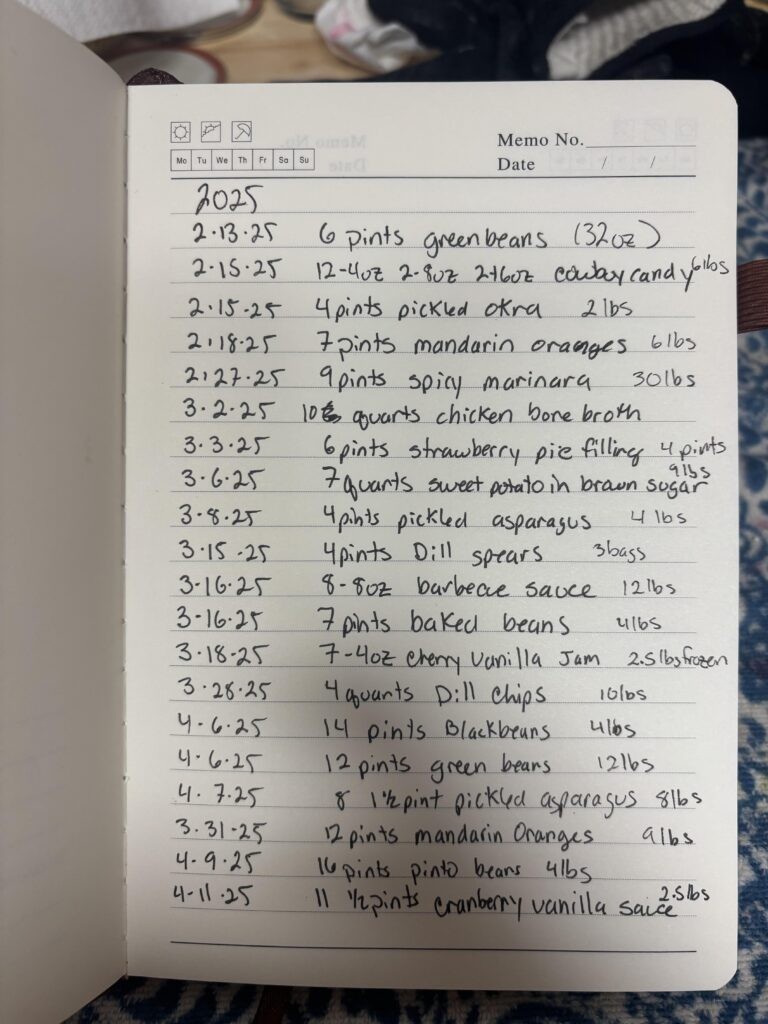 Memo No.
Mo Tu We Th Fr Sa Su
Date / /
2025
2.13.25 6 pints greenbeans (32oz)
2.15.25 12-4oz 2-8oz 2-16oz cowboy candy 6lbs
2.15-25 4 pints pickled okra 2 lbs
2.18.25 7 pints mandarin oranges 6 lbs
2.27.25 9 pints spicy marinara 30lbs
3.2.25 10 quarts chicken bone broth
3.3.25 6 pints strawberry pie filling 4 pints
3.6.25 7 quarts sweet potato in brown sugar 9lbs
3.8.25 4 pints pickled asparagus 4 lbs
3.15-25 4 pints Dill spears 3 bags
3-16.25 8-8oz barbecue sauce 12lbs
3-16.25 7 pints baked beans 4lbs
3-18-25 7-4oz Cherry Vanilla Jam 2.5 lbs frozen
3.28.25 4 quarts Dill Chips 10lbs
4-6.25 14 pints Blackbeans 4lbs
4-6.25 12 pints green beans 12lbs
4.7.25 8 1 1/2 pint pickled asparagus 8lbs
3.31-25 12 pints mandarin Oranges 9lbs
4-9.25 16 pints pinto beans 4lbs
4-11.25 11 1/2 pints cranberry vanilla sauce 2.5lbs